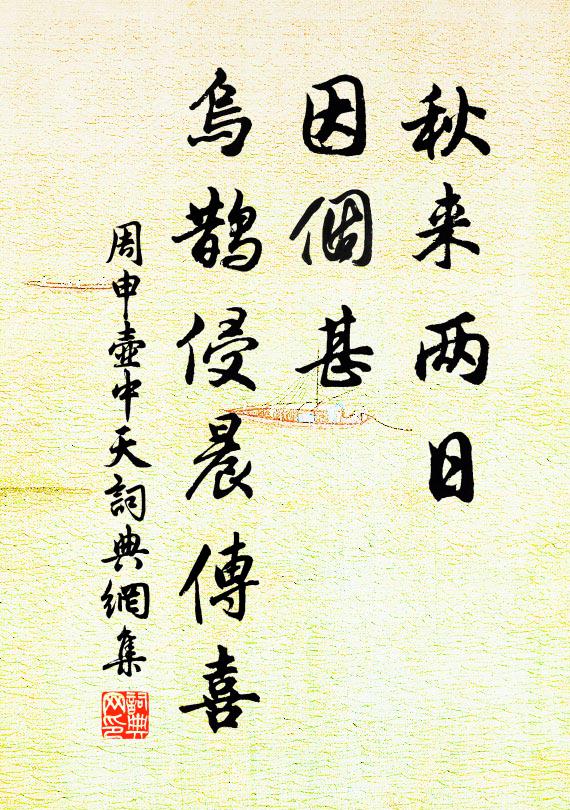 秋来两日
因個甚
烏鵲侵晨傳喜
周申壺中天詞典網集
詞典网印